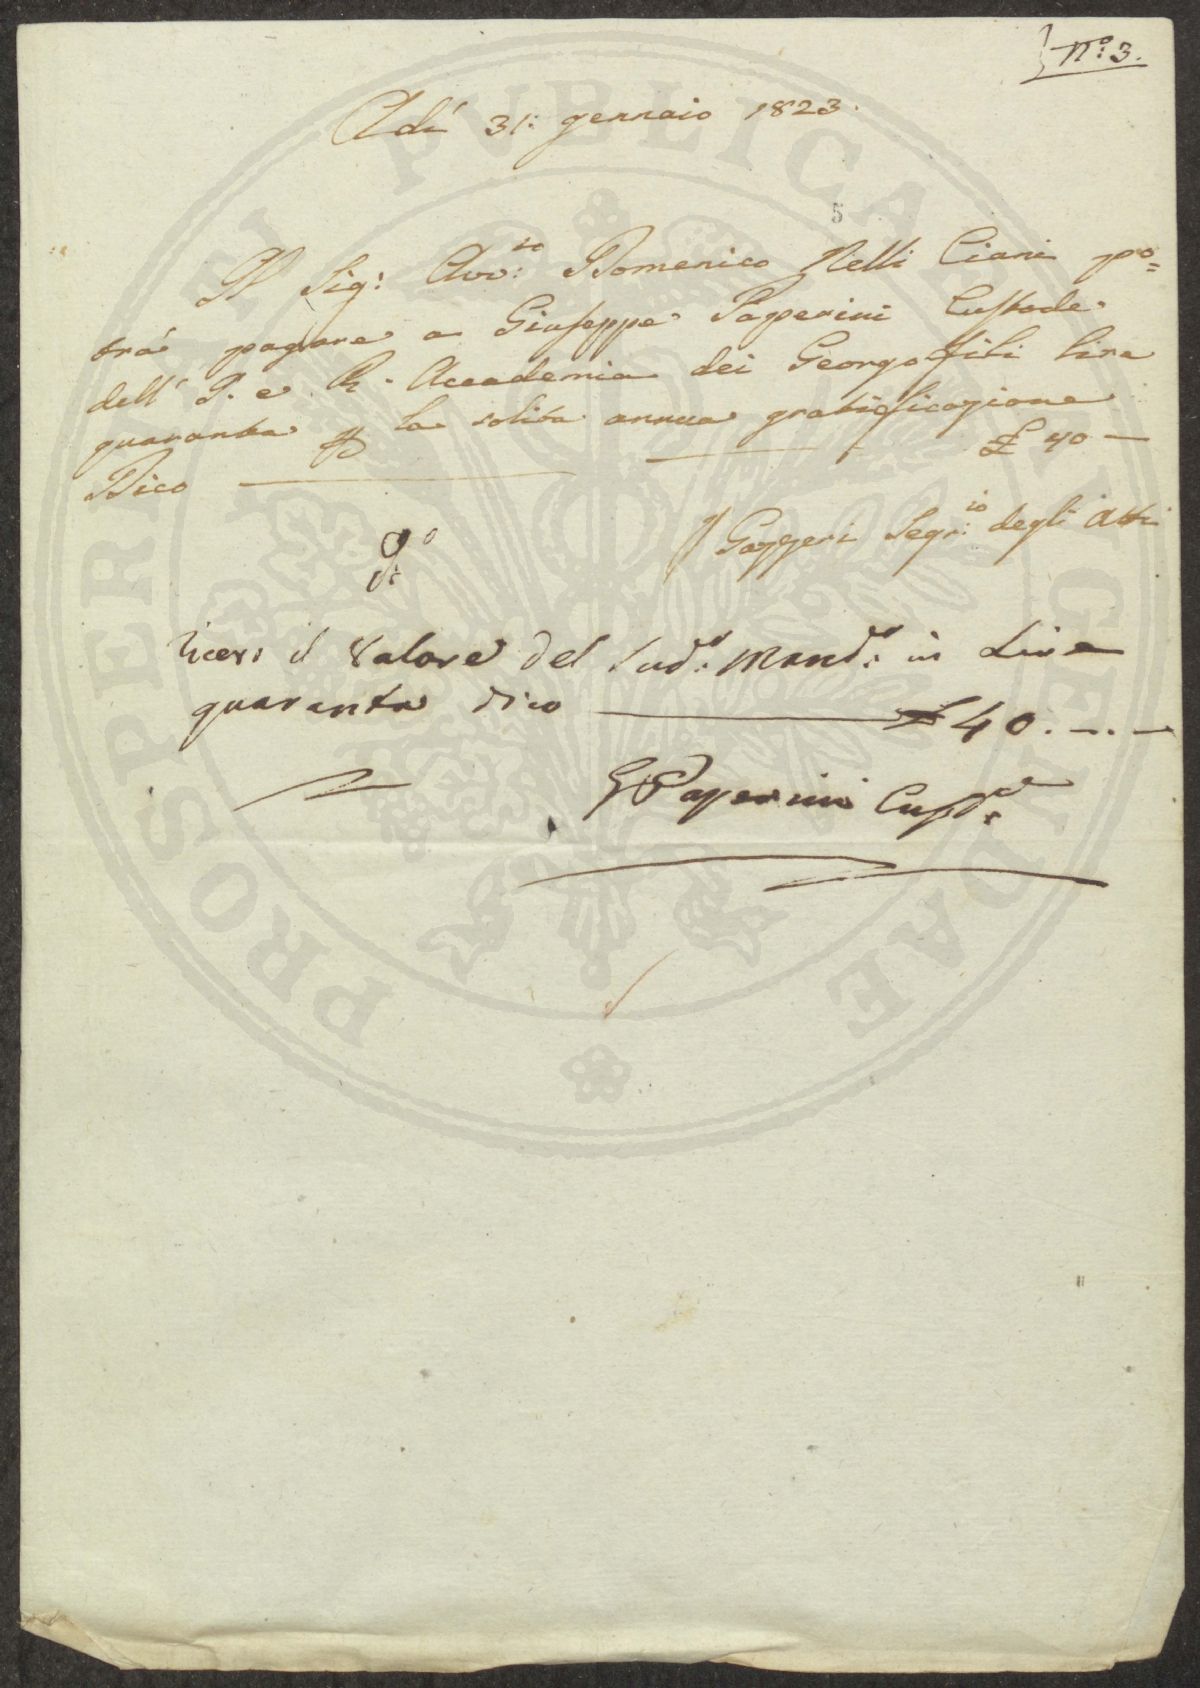 N.o 3.
Adì 31: gennaio 1823.
5
Il Sig: Avv:to Domenico Nelli Ciani po=
trà pagare a Giuseppe Paperini Custode
dell' I. e R. Accademia dei Georgofili lire
quaranta p la solita annua gratificazione
Dico £ 40 —
Gazzeri Segr:io degli Atti
Io
ricevi il valore del sud:o Mand:o in Lire
quaranta dico £ 40. -.. -
G Paperini Custe
PROSPERITATI PUBLICAE AUGENDAE